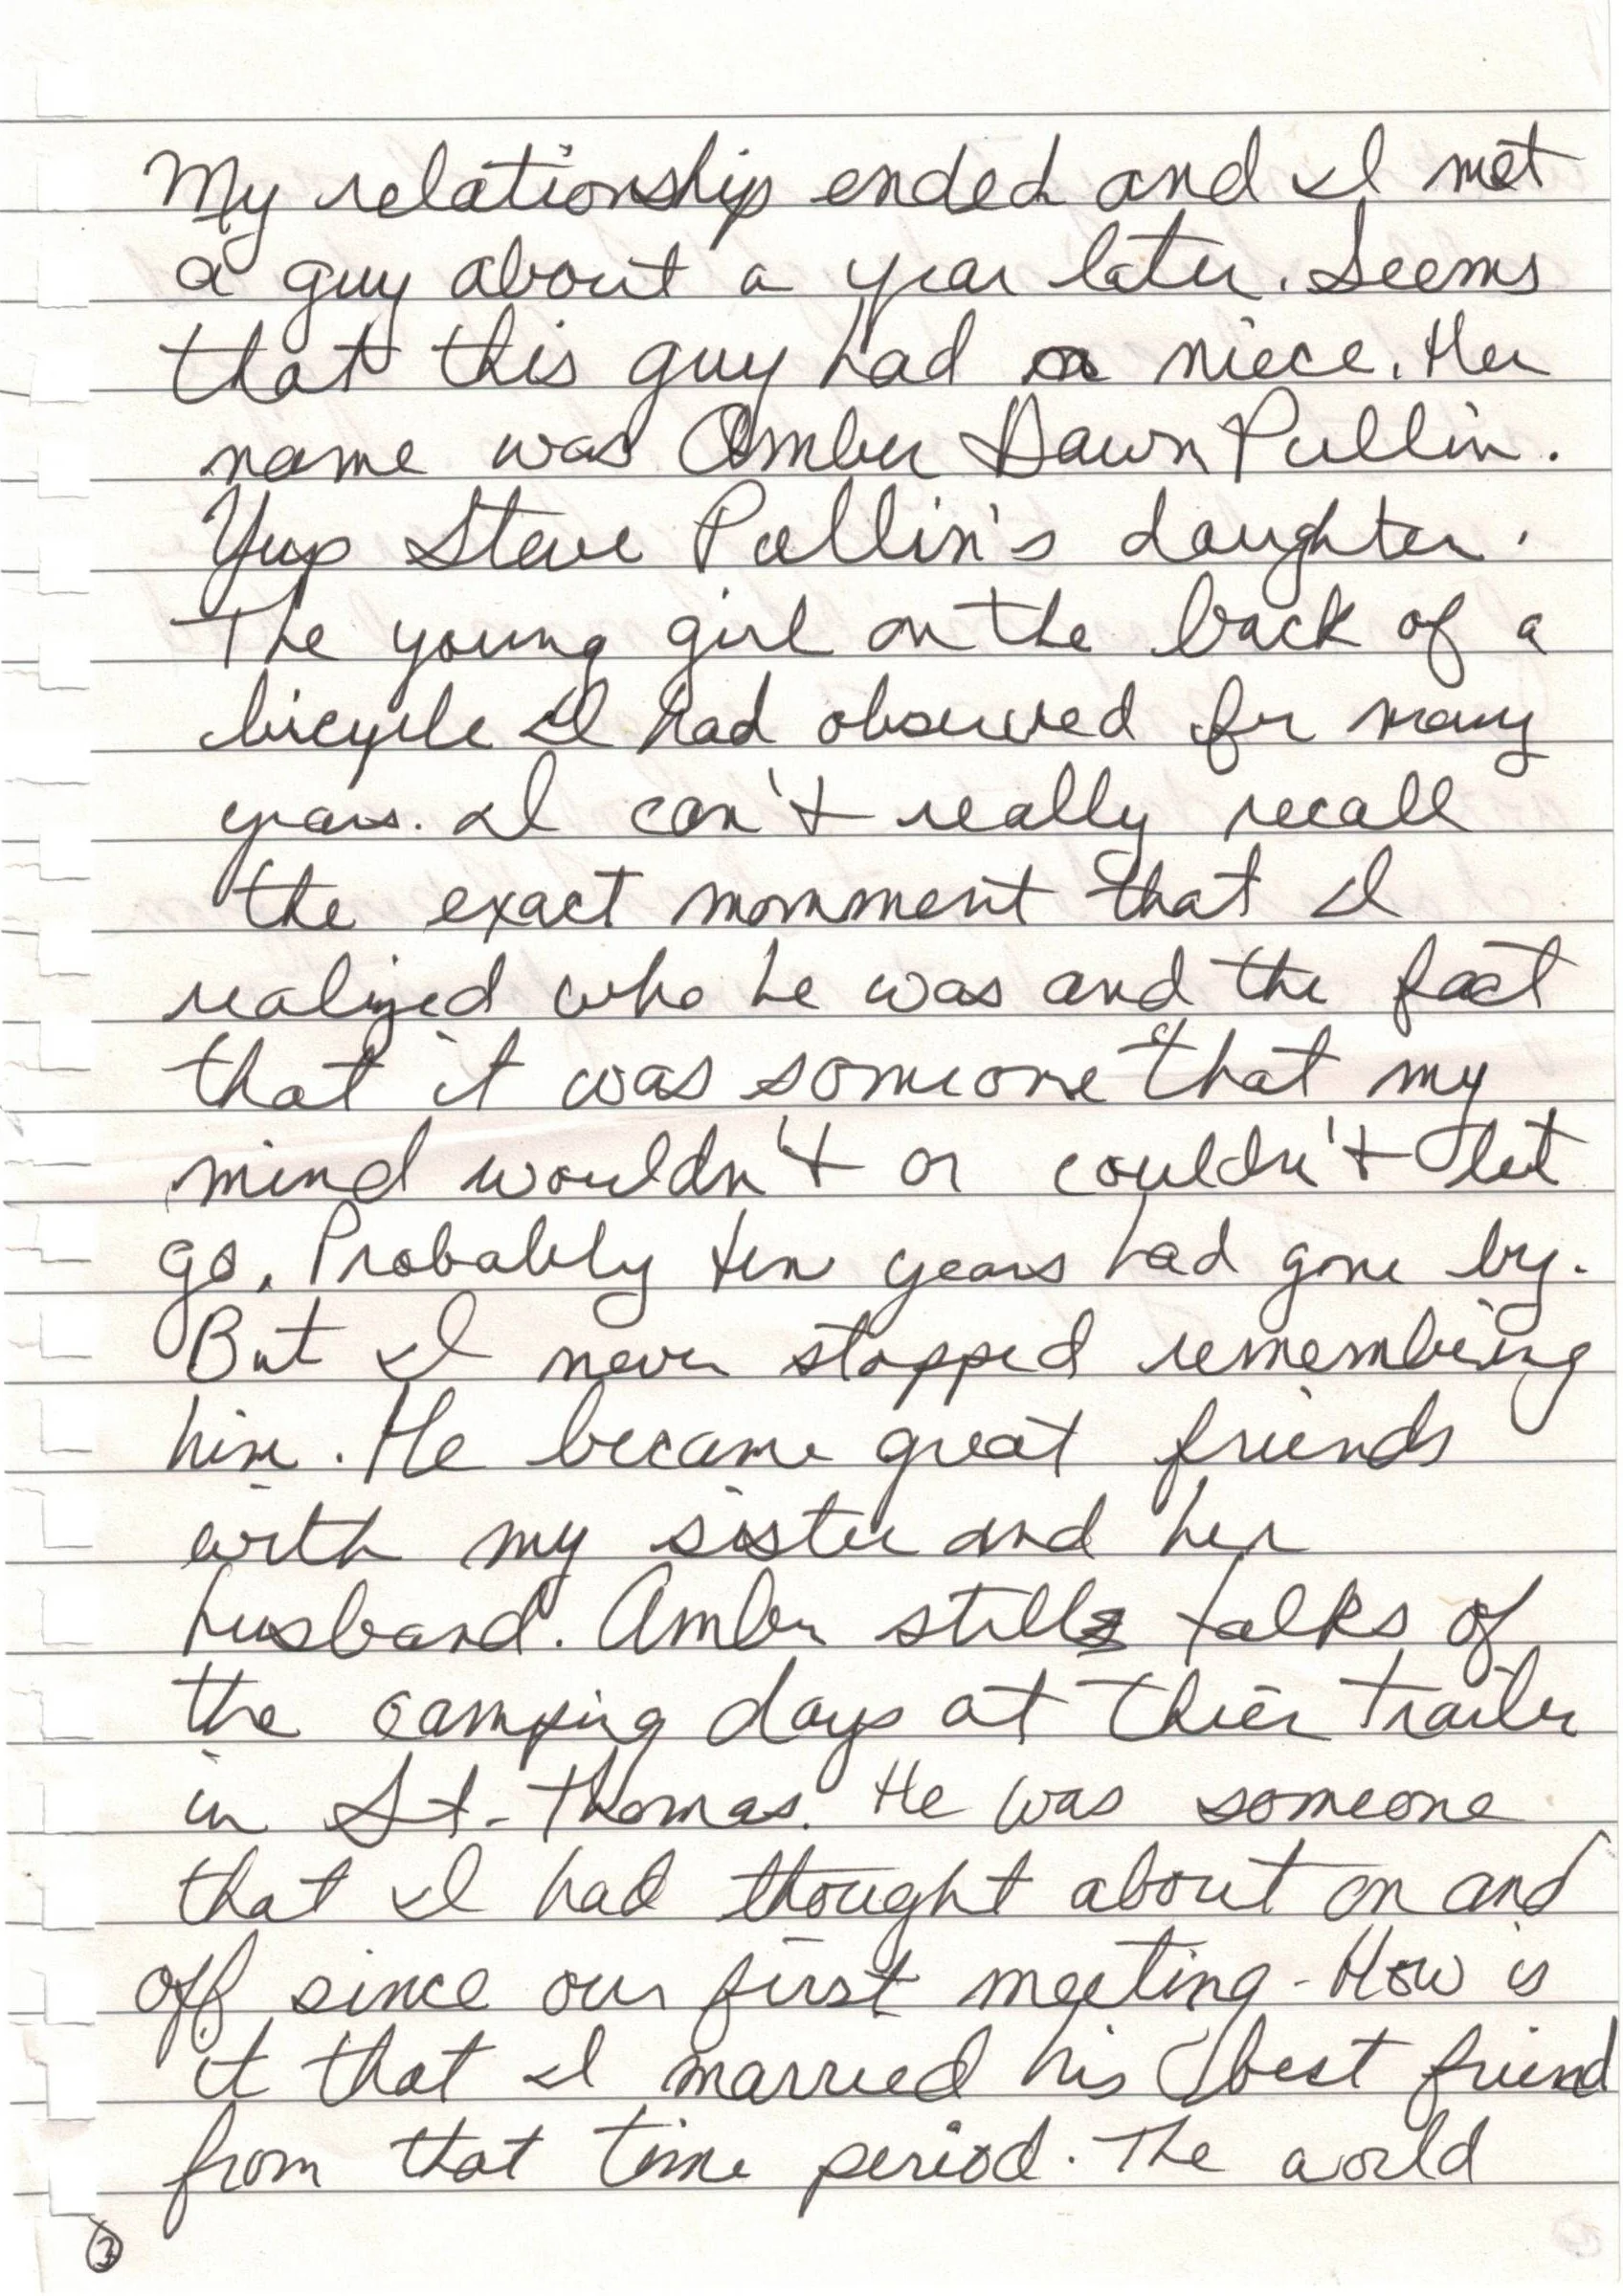 My relationship ended and I met
a guy about a year later. Seems
that this guy had a niece. Her
name was Amber Dawn Pullin.
Yup Steve Pullin's daughter.
The young girl on the back of a
bicycle I had observed for many
years. I can't really recall
the exact momment that I
realized who he was and the fact
that it was someone that my
mind wouldn't or couldn't let
go. Probably ten years had gone by.
But I never stopped remembering
him. He became great friends
with my sister and her
husband. Amber still talks of
the camping days at thier trailer
in St. Thomas. He was someone
that I had thought about on and
off since our first meeting - How is
it that I married his best friend
from that time period. The world